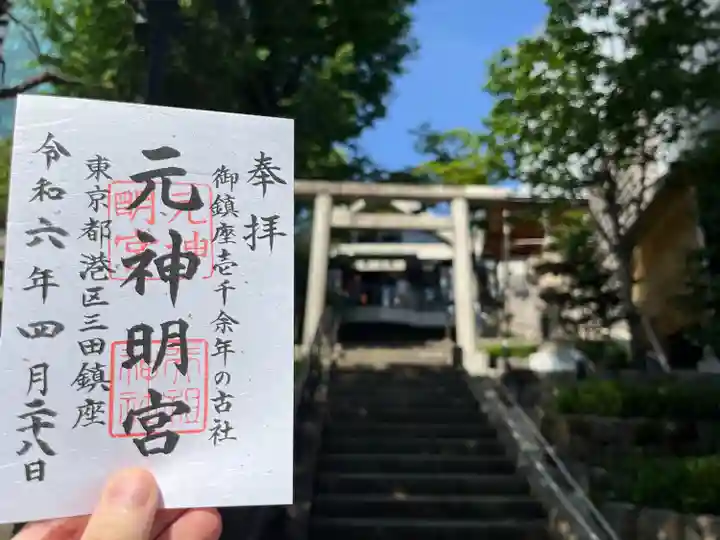 奉拝
御鎮座壱千余年の古社
元神明宮
東京都港区三田鎮座
令和六年四月二十八日